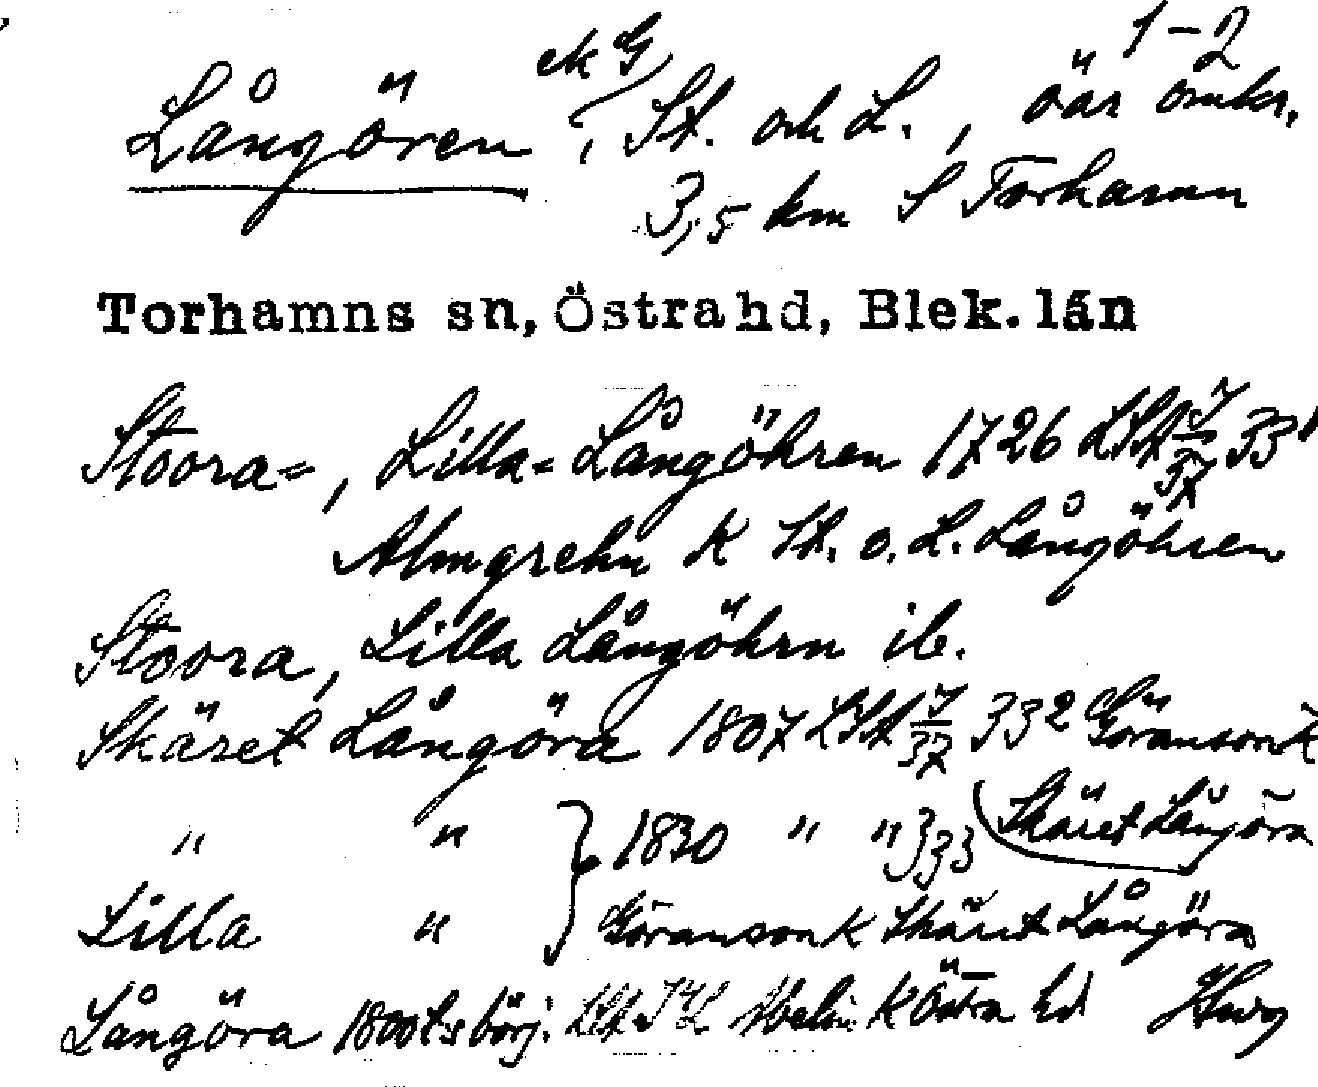 1-2
Långören ek G, St. och L., öar omkr.
3,5 km S Torhamn
Torhamns sn, Östra hd, Blek. län
Stoora=, Lilla=Långöhren 1726 LSA J/37 33¹
Almgrehn K St. o. L. Långöhren
Stoora, Lilla Långöhrn ib.
Skäret Långöra 1807 LSA J/37 33² Göranson K
" " } 1830 " " 33³ Skäret Långöra
Lilla " Göranson K Skäret Långöra
Långöra 1800t:s börj. K Östra hd